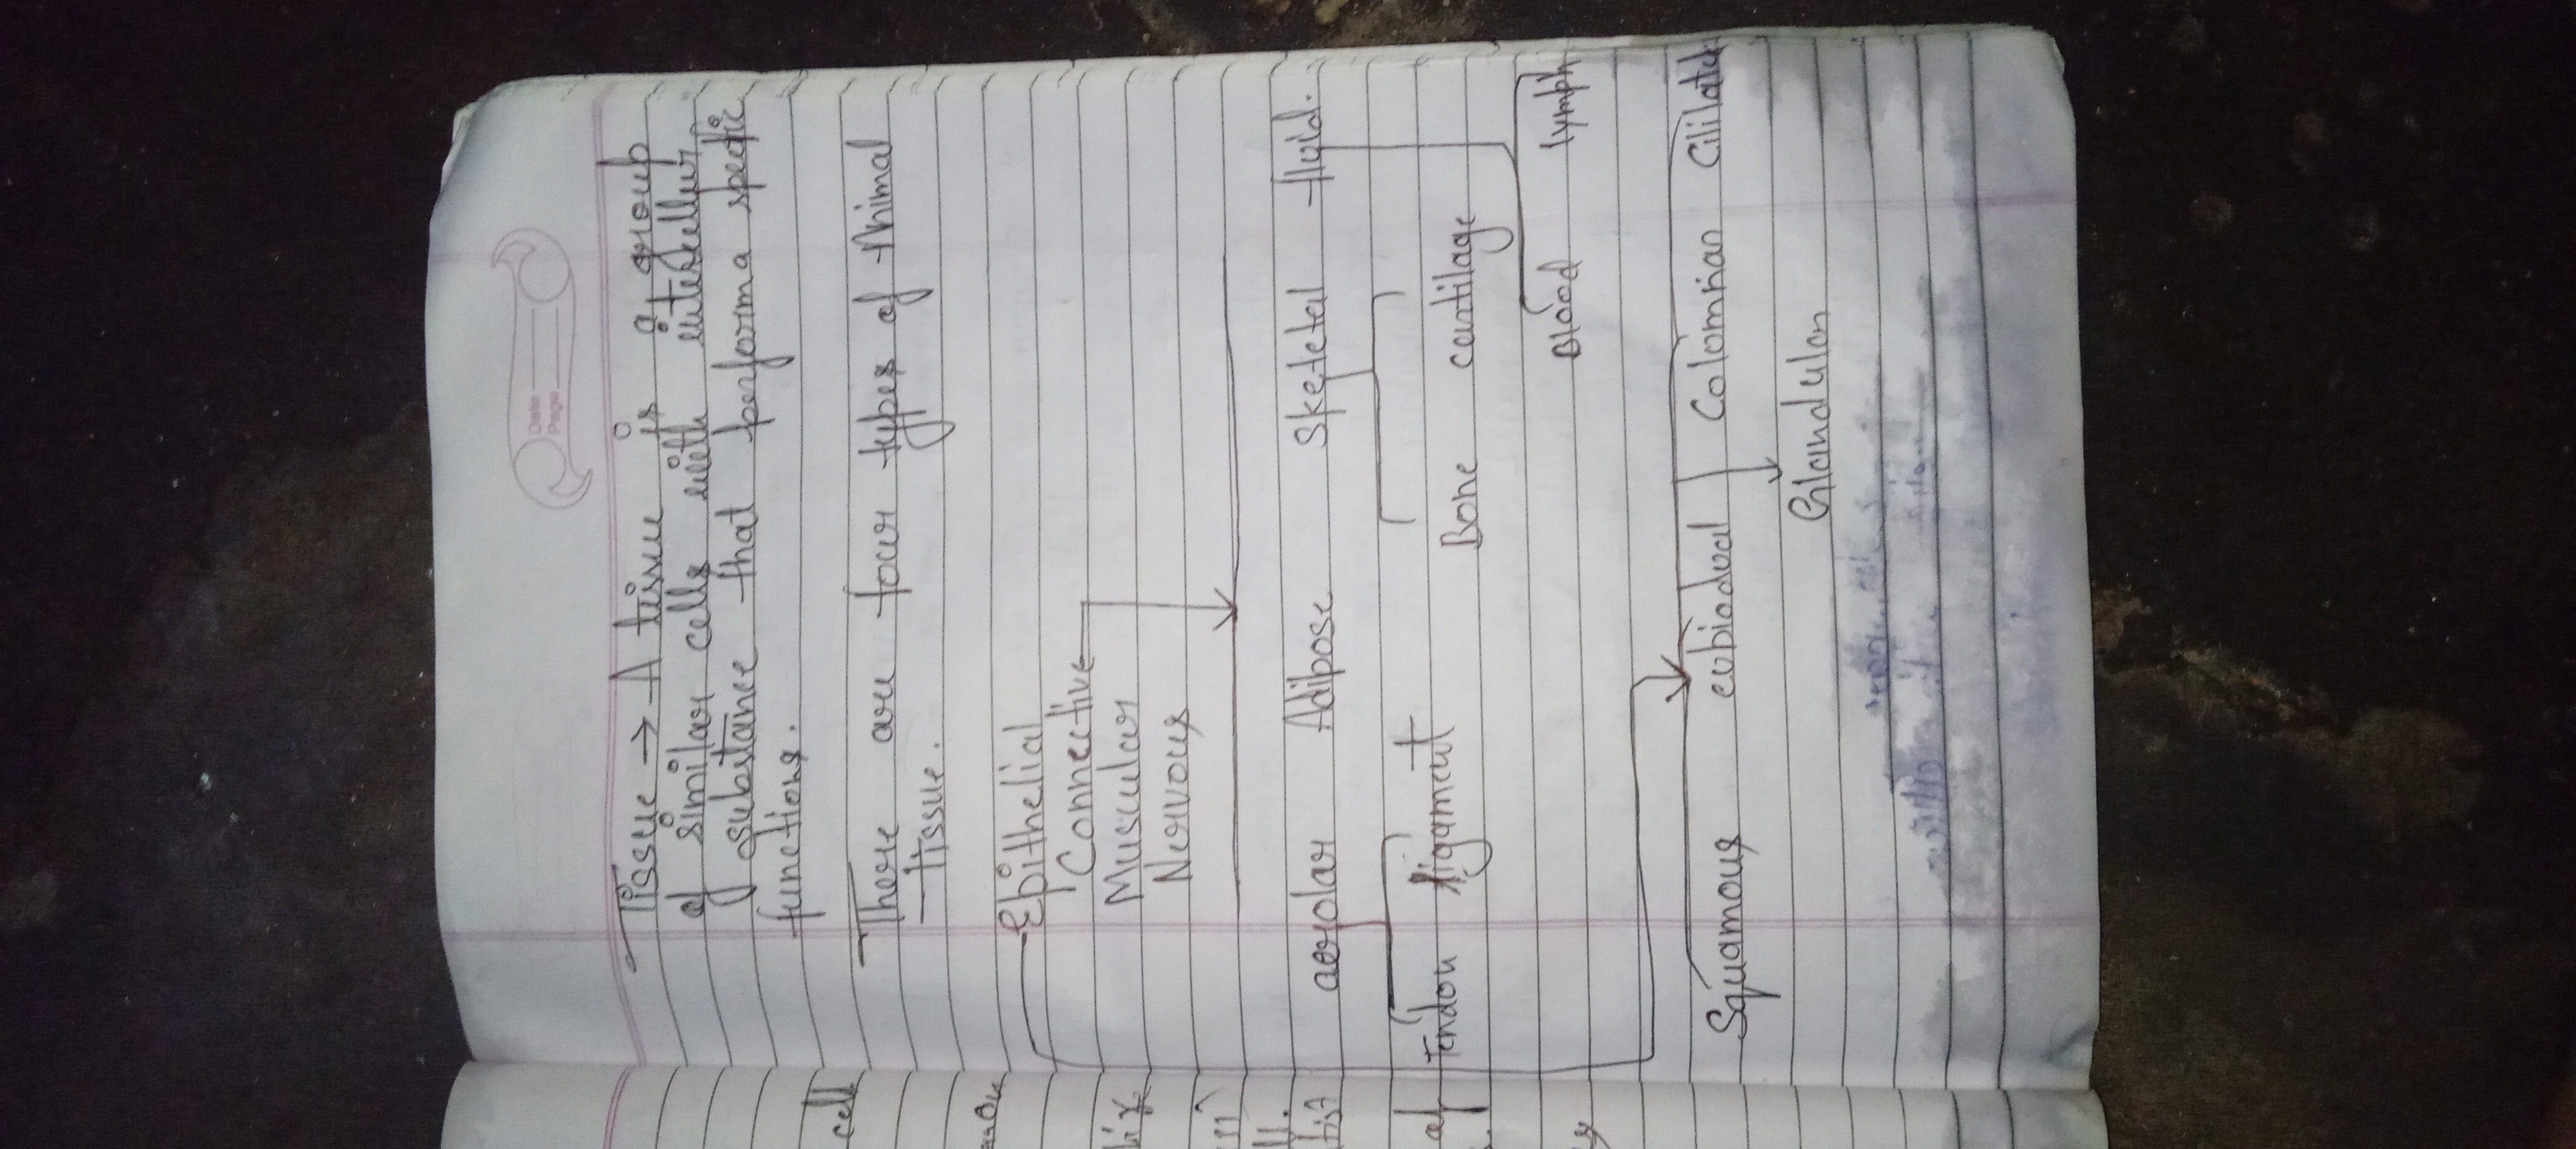 Date
Page
Tissue → A tissue is a group
of similar cells with intercellur
substance that performa specfic
functions.
cell
There are four types of Animal
tissue.
Epithelial
Connective
Muscular
Nervous
aerolar Adipose Sketetal fluid.
Tendon ligament
Bone cartilage
Blood lymph
Squamous cubiodual Colomnian Cililated
Glandular